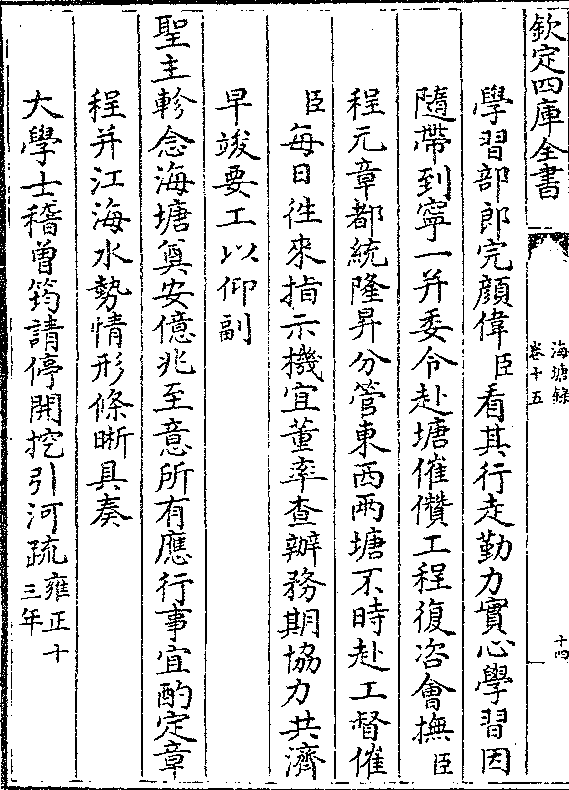 欽定四庫全書
海塘錄
卷十五
十四
學習部郎完顔偉臣看其行走勤力實心學習因
隨帶到寧一并委令赴塘催儧工程復咨會撫臣
程元章都統隆昇分管東西兩塘不時赴工督催
臣每日徃來指示機宜董率查辦務期協力共濟
早竣要工以仰副
聖主軫念海塘奠安億兆至意所有應行事宜酌定章
程并江海水勢情形條晰具奏
大學士稽曾筠請停開挖引河疏雍正十
三年